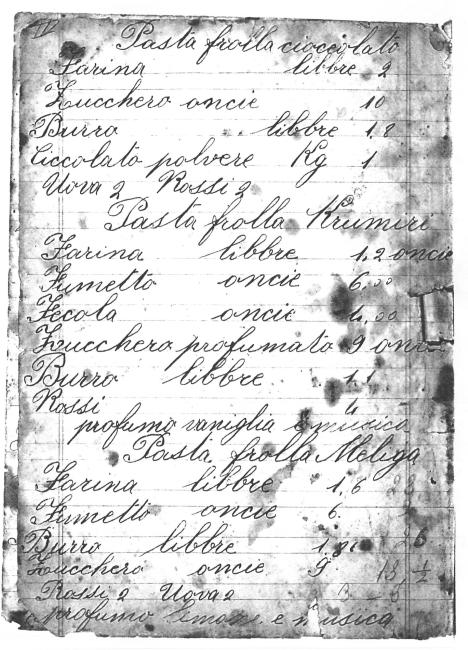 IV
Pasta frolla cioccolato
Farina libbre 2
Zucchero oncie 10
Burro libbre 1,2
Ciccolato polvere Kg 1
Uova 2 Rossi 2
Pasta frolla Krumiri
Farina libbre 1,2 oncie
Fumetto oncie 6,00
Fecola oncie 4,00
Zucchero profumato 9 oncie
Burro libbre 1,1
Rossi 4
profumo vaniglia e musica
Pasta frolla Meliga
Farina libbre 1,6
Fumetto oncie 6.
Burro libbre 26
Zucchero oncie 9 13 1/2
Rossi 2 Uova 2
profumo limone e musica